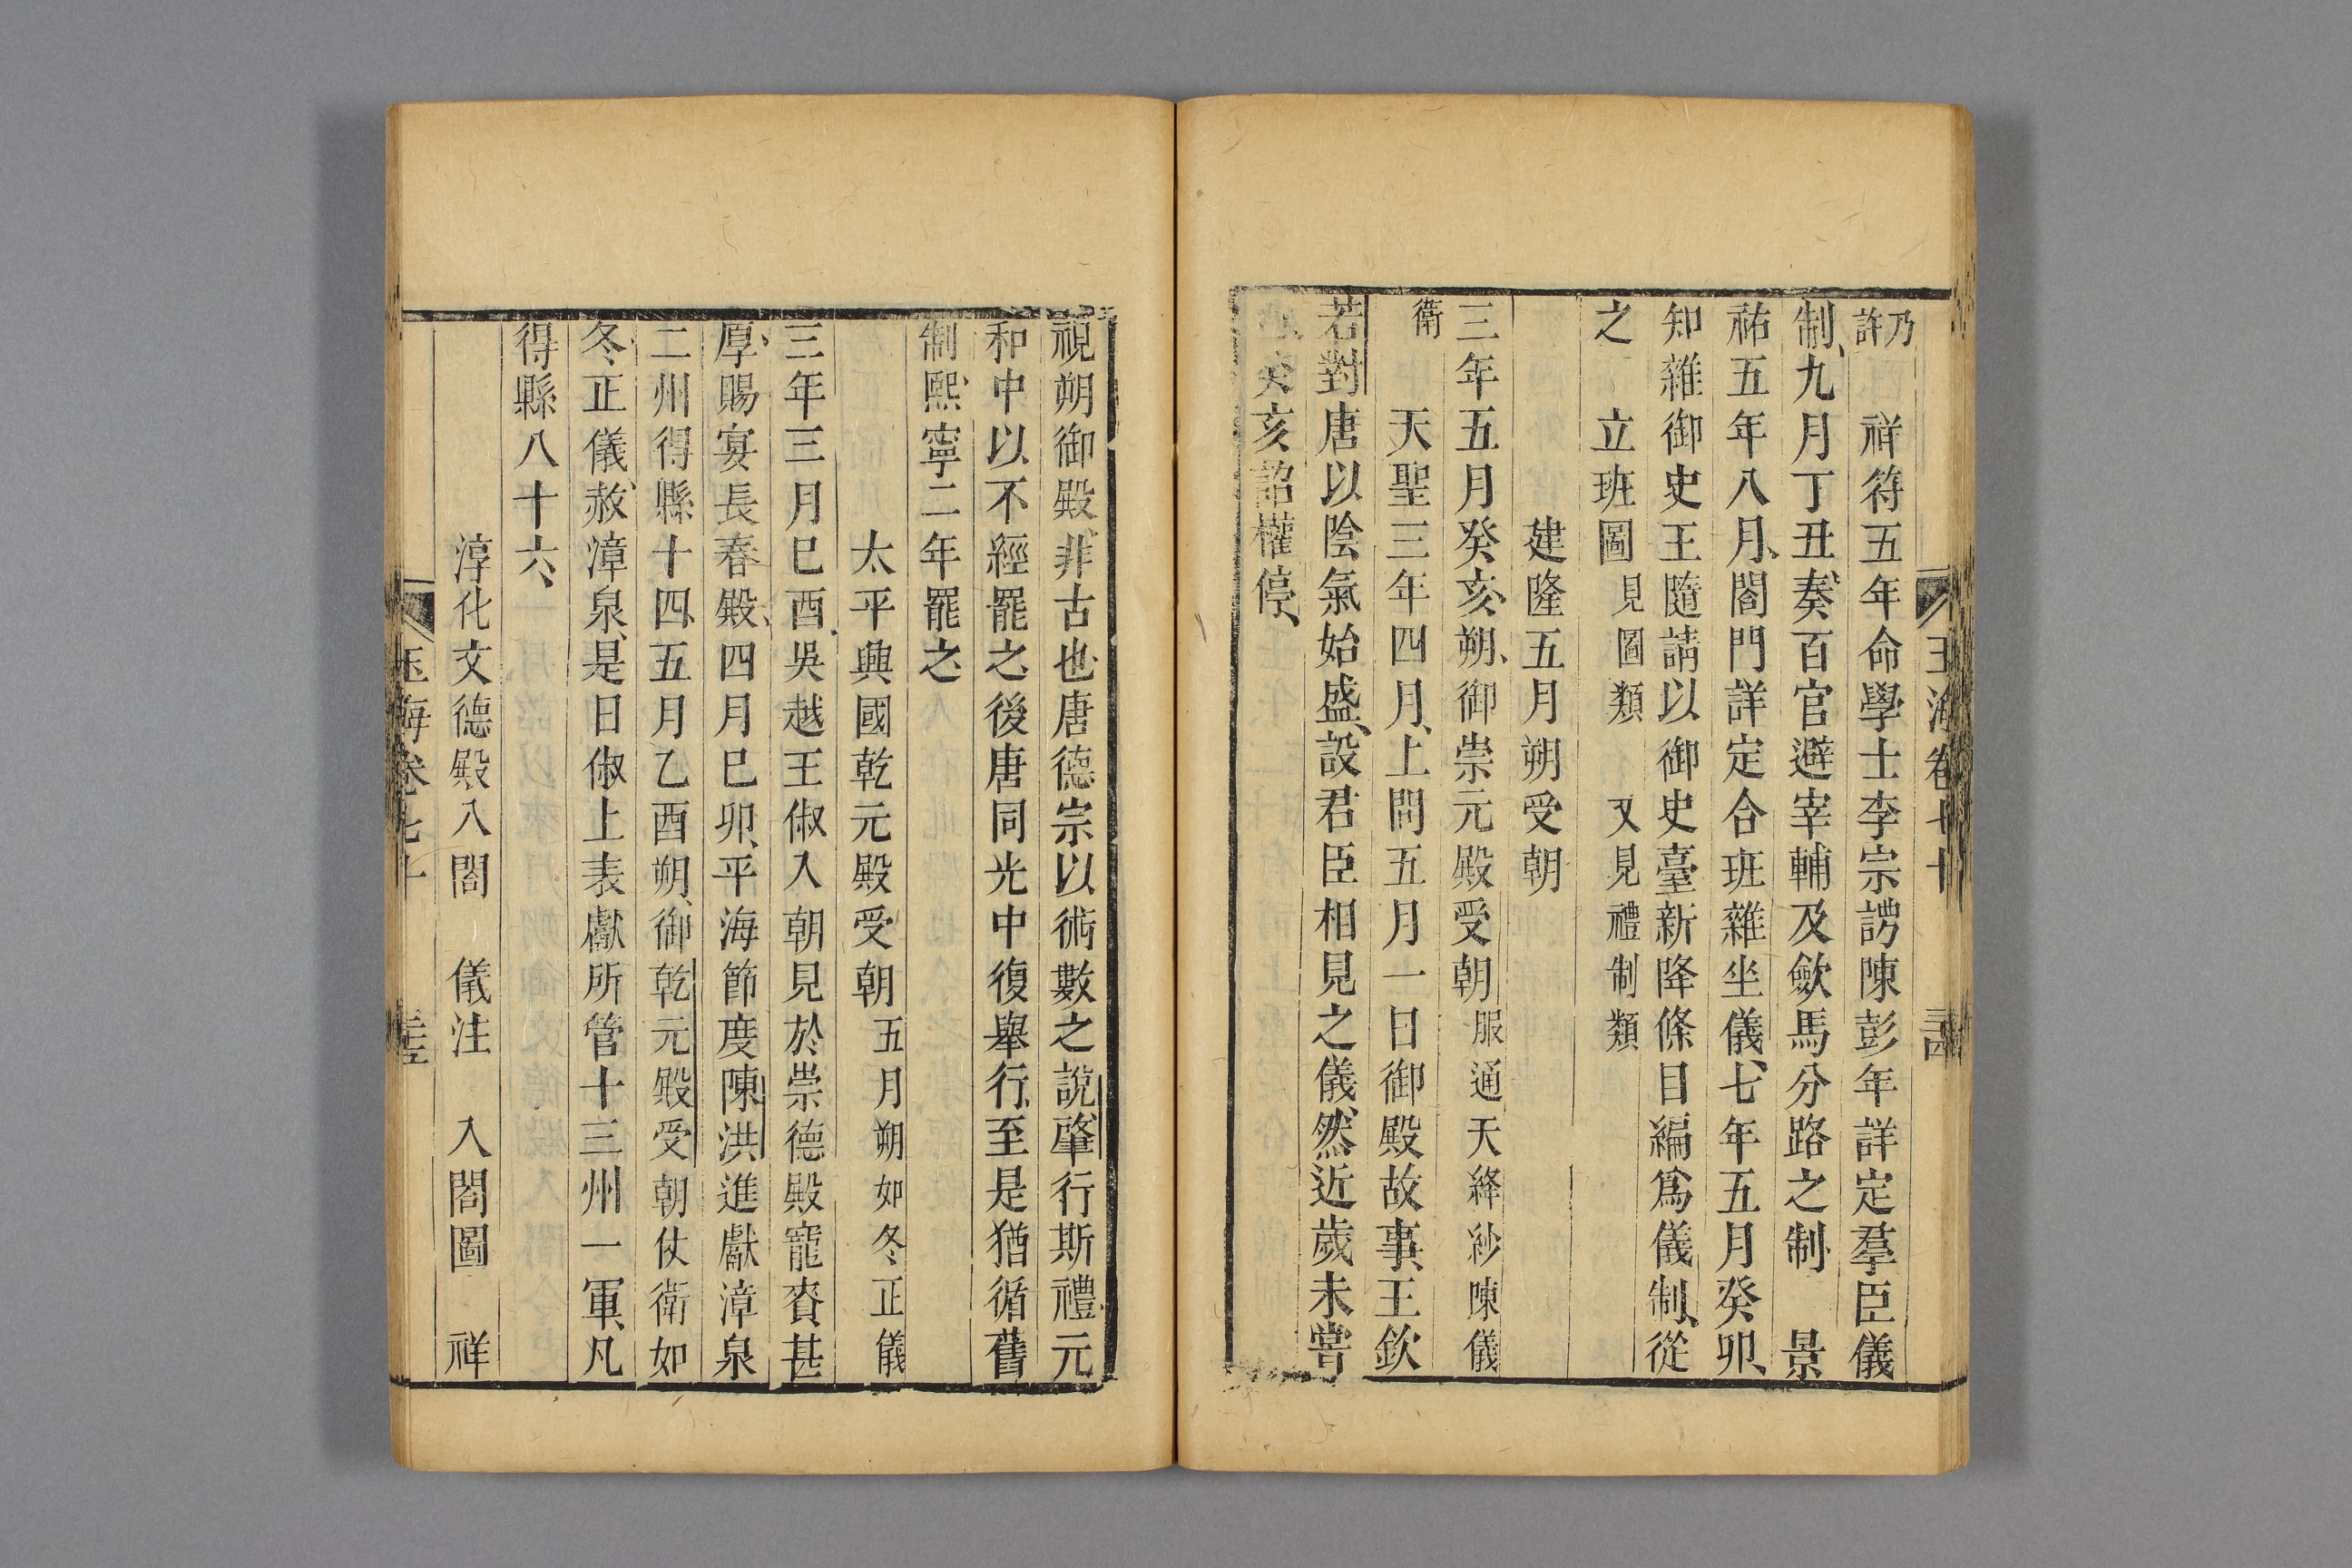 乃許　祥符五年命學士李宗諤陳彭年詳定羣臣儀
制九月丁丑奏百官避宰輔及歛馬分路之制　景
祐五年八月閤門詳定合班雜坐儀七年五月癸卯
知雜御史王隨請以御史臺新降條目編爲儀制從
之　立班圖見圖類　又見禮制類
建隆五月朔受朝
三年五月癸亥朔御崇元殿受朝服通天絳紗陳儀
衛　天聖三年四月上問五月一日御殿故事王欽
若對唐以陰氣始盛設君臣相見之儀然近歲未嘗
亥詔權停
玉海卷七十
視朔御殿非古也唐德宗以術數之說肇行斯禮元
和中以不經罷之後唐同光中復舉行至是猶循舊
制熙寧二年罷之
太平興國乾元殿受朝五月朔如冬正儀
三年三月巳酉吳越王俶入朝見於崇德殿寵賚甚
厚賜宴長春殿四月巳卯平海節度陳洪進獻漳泉
二州得縣十四五月乙酉朔御乾元殿受朝仗衛如
冬正儀赦漳泉是日俶上表獻所管十三州一軍凡
得縣八十六
淳化文德殿入閤　儀注　入閤圖　祥
玉海卷七十